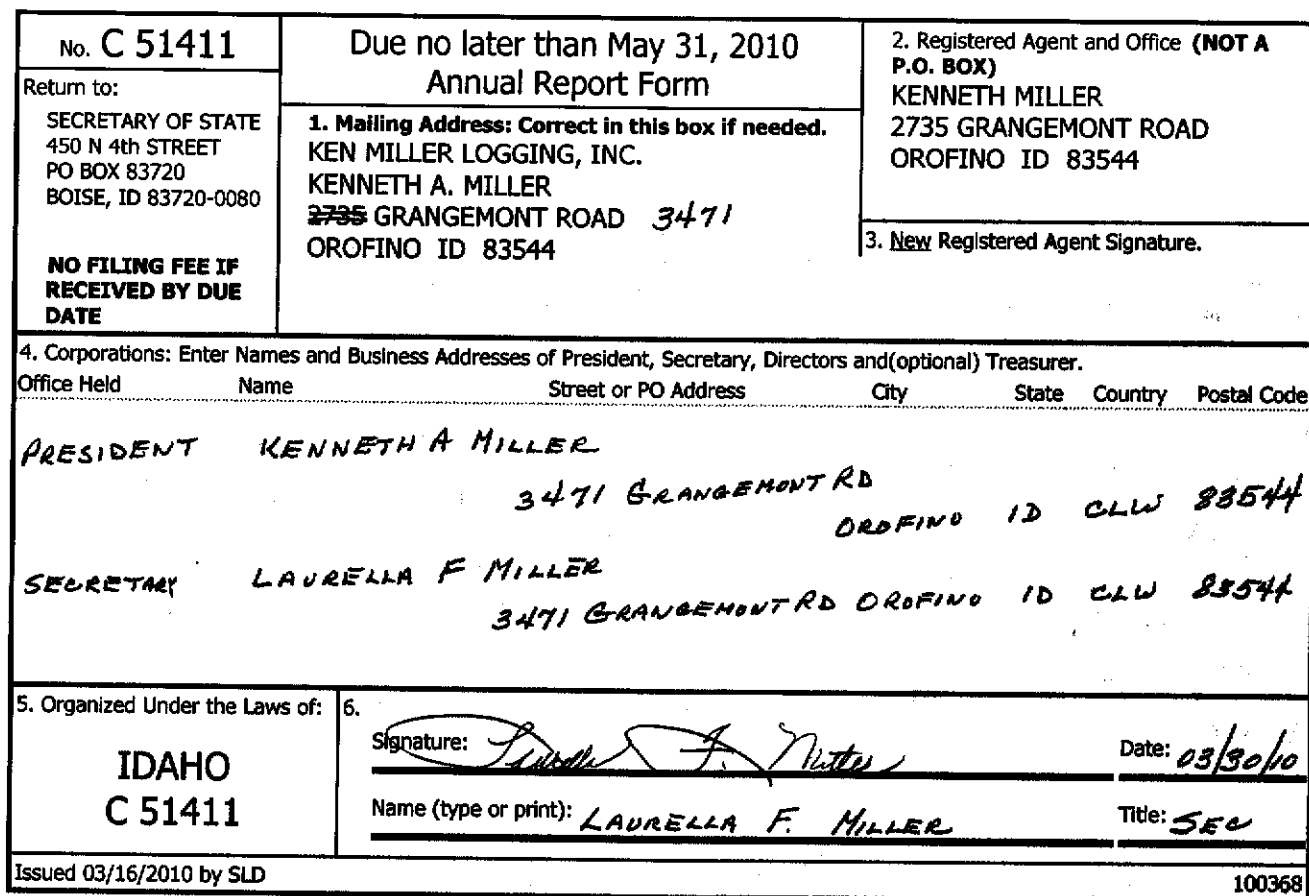 No. C 51411
Return to:
SECRETARY OF STATE
450 N 4th STREET
PO BOX 83720
BOISE, ID 83720-0080
NO FILING FEE IF
RECEIVED BY DUE
DATE
Due no later than May 31, 2010
Annual Report Form
1. Mailing Address: Correct in this box if needed.
KEN MILLER LOGGING, INC.
KENNETH A. MILLER
2735 GRANGEMONT ROAD 3471
OROFINO ID 83544
2. Registered Agent and Office (NOT A
P.O. BOX)
KENNETH MILLER
2735 GRANGEMONT ROAD
OROFINO ID 83544
3. New Registered Agent Signature.
4. Corporations: Enter Names and Business Addresses of President, Secretary, Directors and(optional) Treasurer.
Office Held Name Street or PO Address City State Country Postal Code
PRESIDENT KENNETH A MILLER
3471 GRANGEMONT RD
OROFINO ID CLW 83544
SECRETARY LAURELLA F MILLER
3471 GRANGEMONT RD OROFINO ID CLW 83544
5. Organized Under the Laws of:
IDAHO
C 51411
6.
Signature: Laurella F. Miller Date: 03/30/10
Name (type or print): LAURELLA F. MILLER Title: SEC
Issued 03/16/2010 by SLD
100368